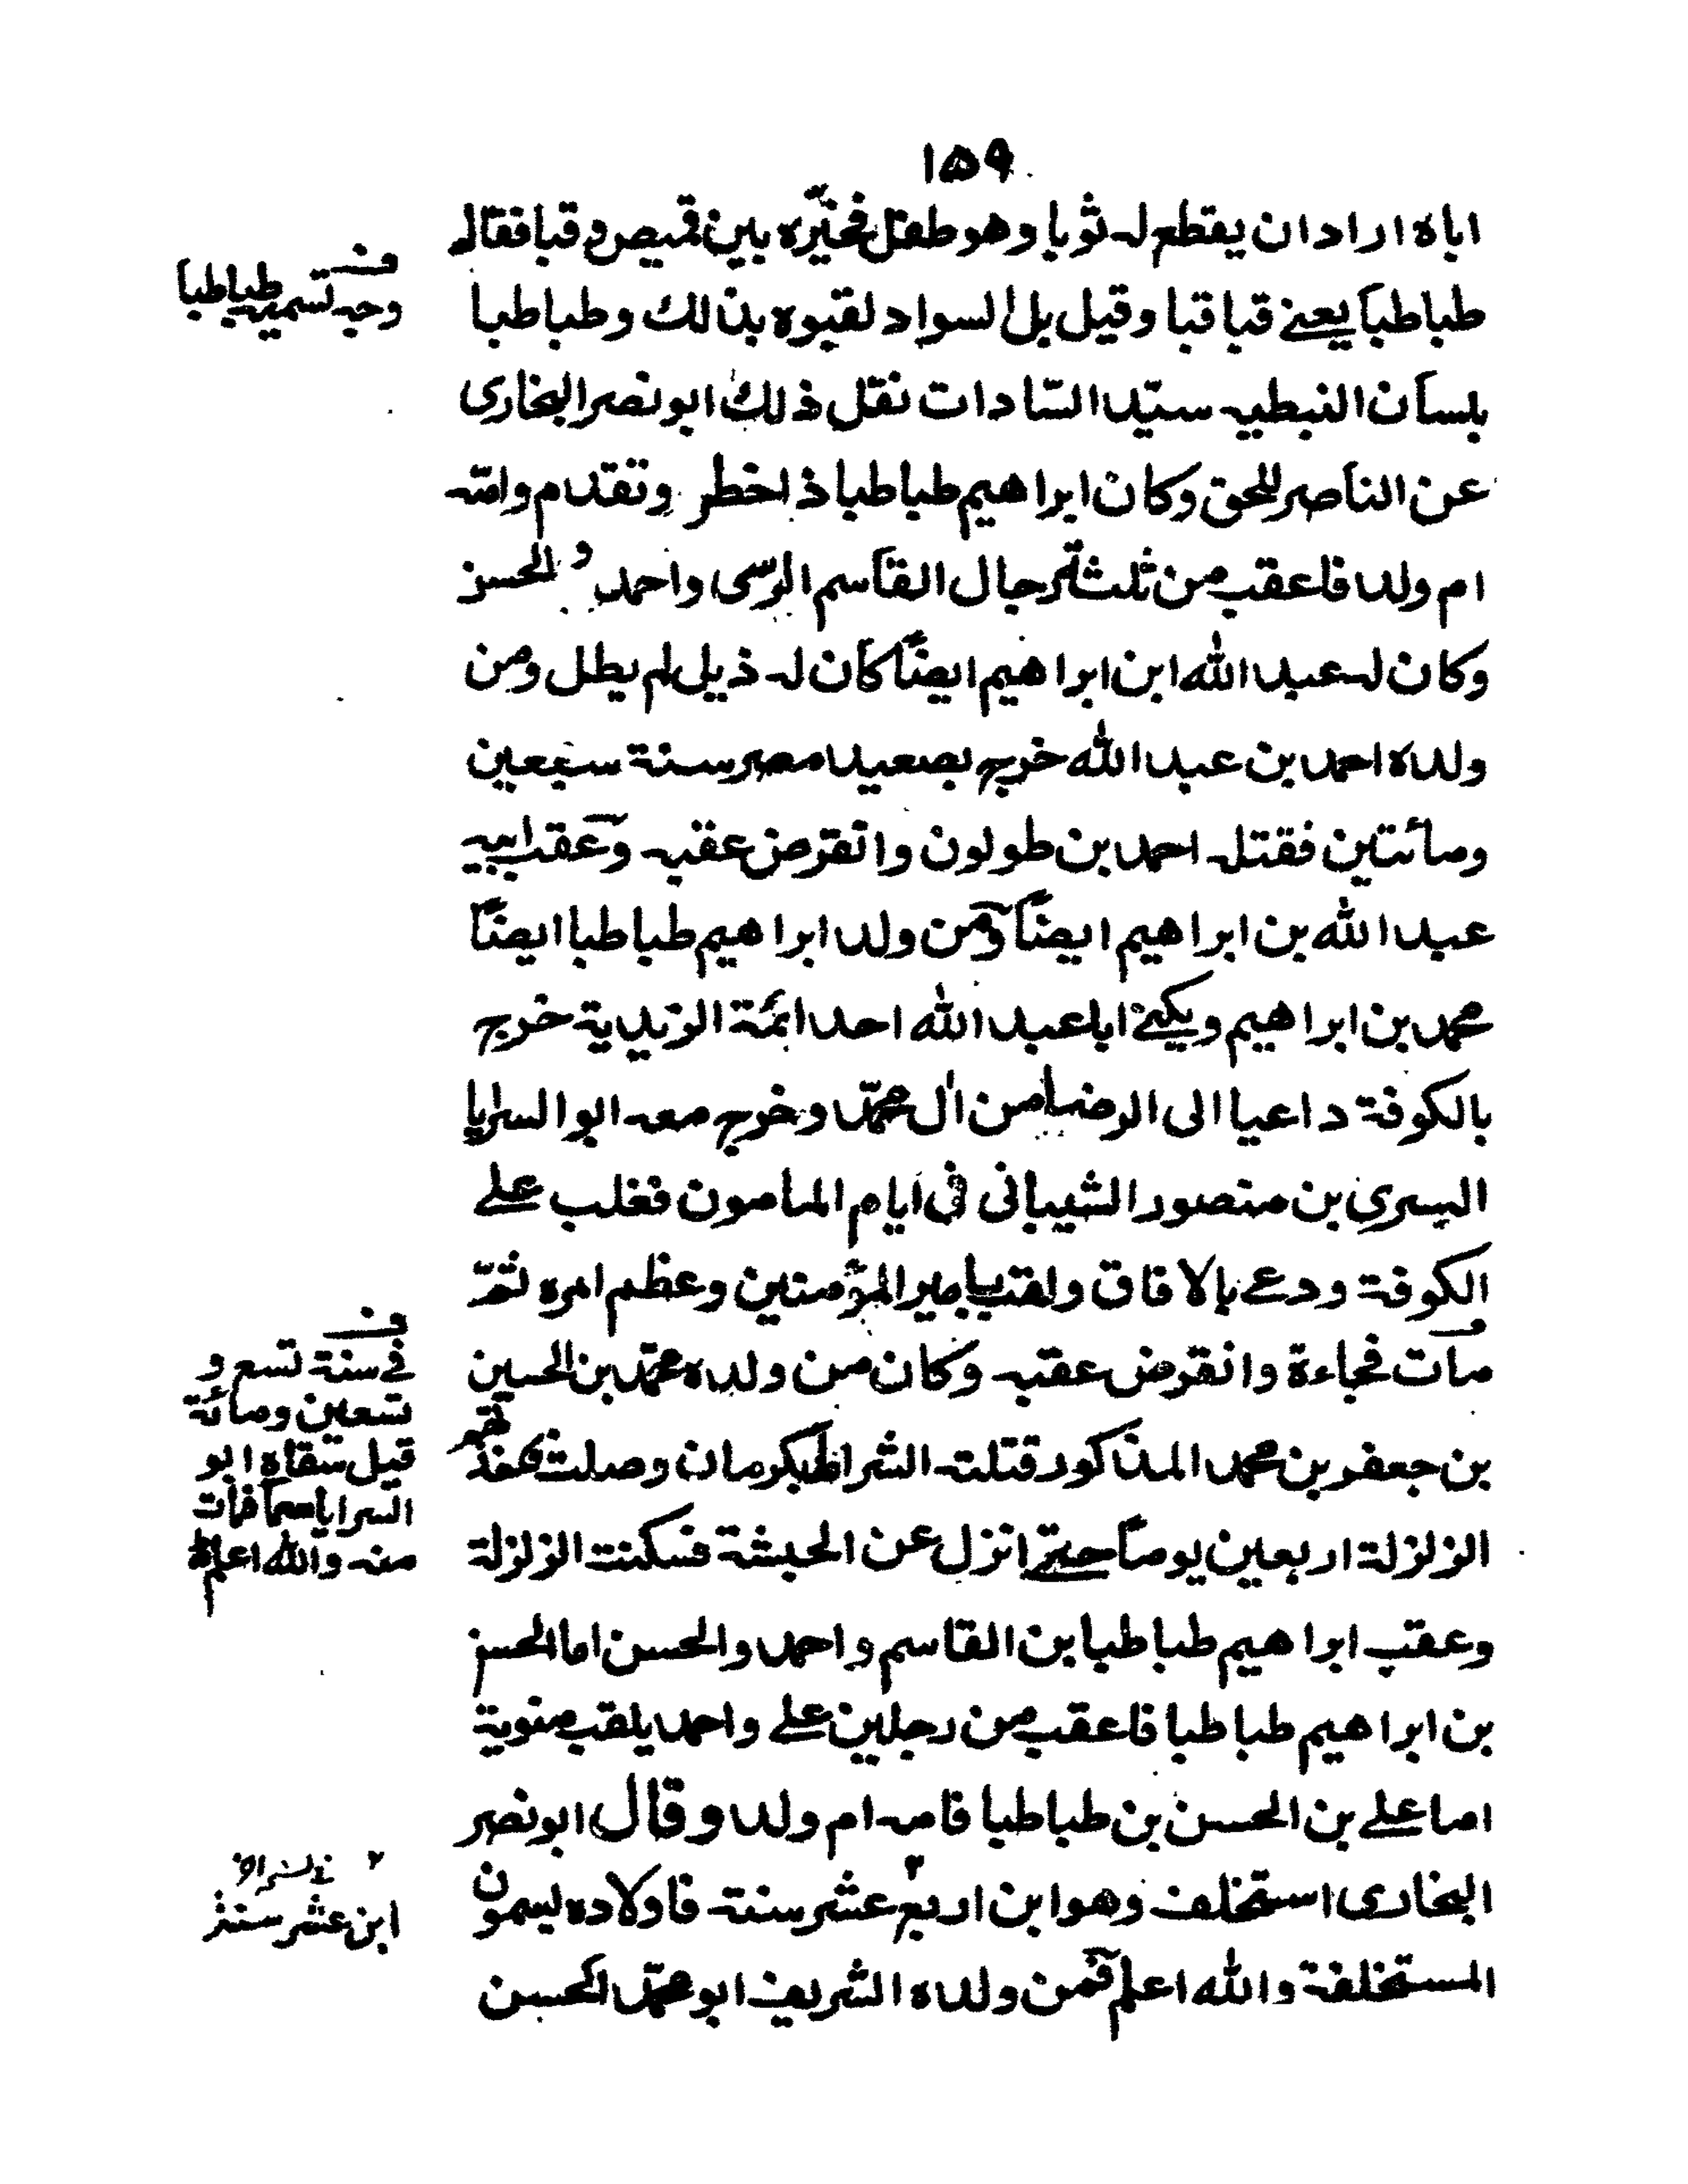 ١٥٩
اباه اراد ان يقطع له ثوبا وهو طفل فخيّره بين قميص و قبا فقال
طباطبا يعنے قبا قبا وقيل بل السواد لقبوه بذالك وطباطبا
بلسان النبطيه سيّد السّادات نقل ذلك ابو نصر البخارى
عن الناصر للحق وكان ابراهيم طباطبا ذا خطر وتقدم وامّه
ام ولد فاعقب من ثلثة رجال القاسم الرسّى واحمد و الحسن
وكان له عبد الله ابن ابراهيم ايضًا كان له ذيل لم يطل ومن
ولده احمد بن عبد الله خرج بصعيد مصر سنة سبعين
ومائتين فقتله احمد بن طولون وانقرض عقبه وعقب ابيه
عبد الله بن ابراهيم ايضًا ومن ولد ابراهيم طباطبا ايضًا
محمد بن ابراهيم ويكنے ابا عبد الله احد ائمة الزيدية خرج
بالكوفة داعيا الى الرضا من ال محمّد وخرج معه ابو السرايا
السرى بن منصور الشيبانى فى ايام المامون فغلب علے
الكوفة ودعے بالافاق ولقب بامير المؤمنين وعظم امره ثمّ
مات فجاءة وانقرض عقبه وكان من ولده محمّد بن الحسين
بن جعفر بن محمد المذكور قتلته الشراة بكرمان وصلت
الزلزلة اربعين يومًا حتے انزل عن الخبشة فسكنت الزلزلة
وعقب ابراهيم طباطبا بن القاسم واحمد والحسن اما الحسن
بن ابراهيم طباطبا فاعقب من رجلين علے واحمد يلقب متوية
اما علے بن الحسن بن طباطبا فامه ام ولد وقال ابو نصر
البخارى استخلف وهو ابن اربع عشر سنة فاولاده يسمون
المستخلفة والله اعلم فمن ولده الشريف ابو محمّد الحسن
ف
وجه تسميه طباطبا
ف
فے سنة تسع و
تسعين ومائة
قيل سقاه ابو
السرايا سما فمات
منه والله اعلم
٢ فے نسخ اخر
ابن عشر سنة